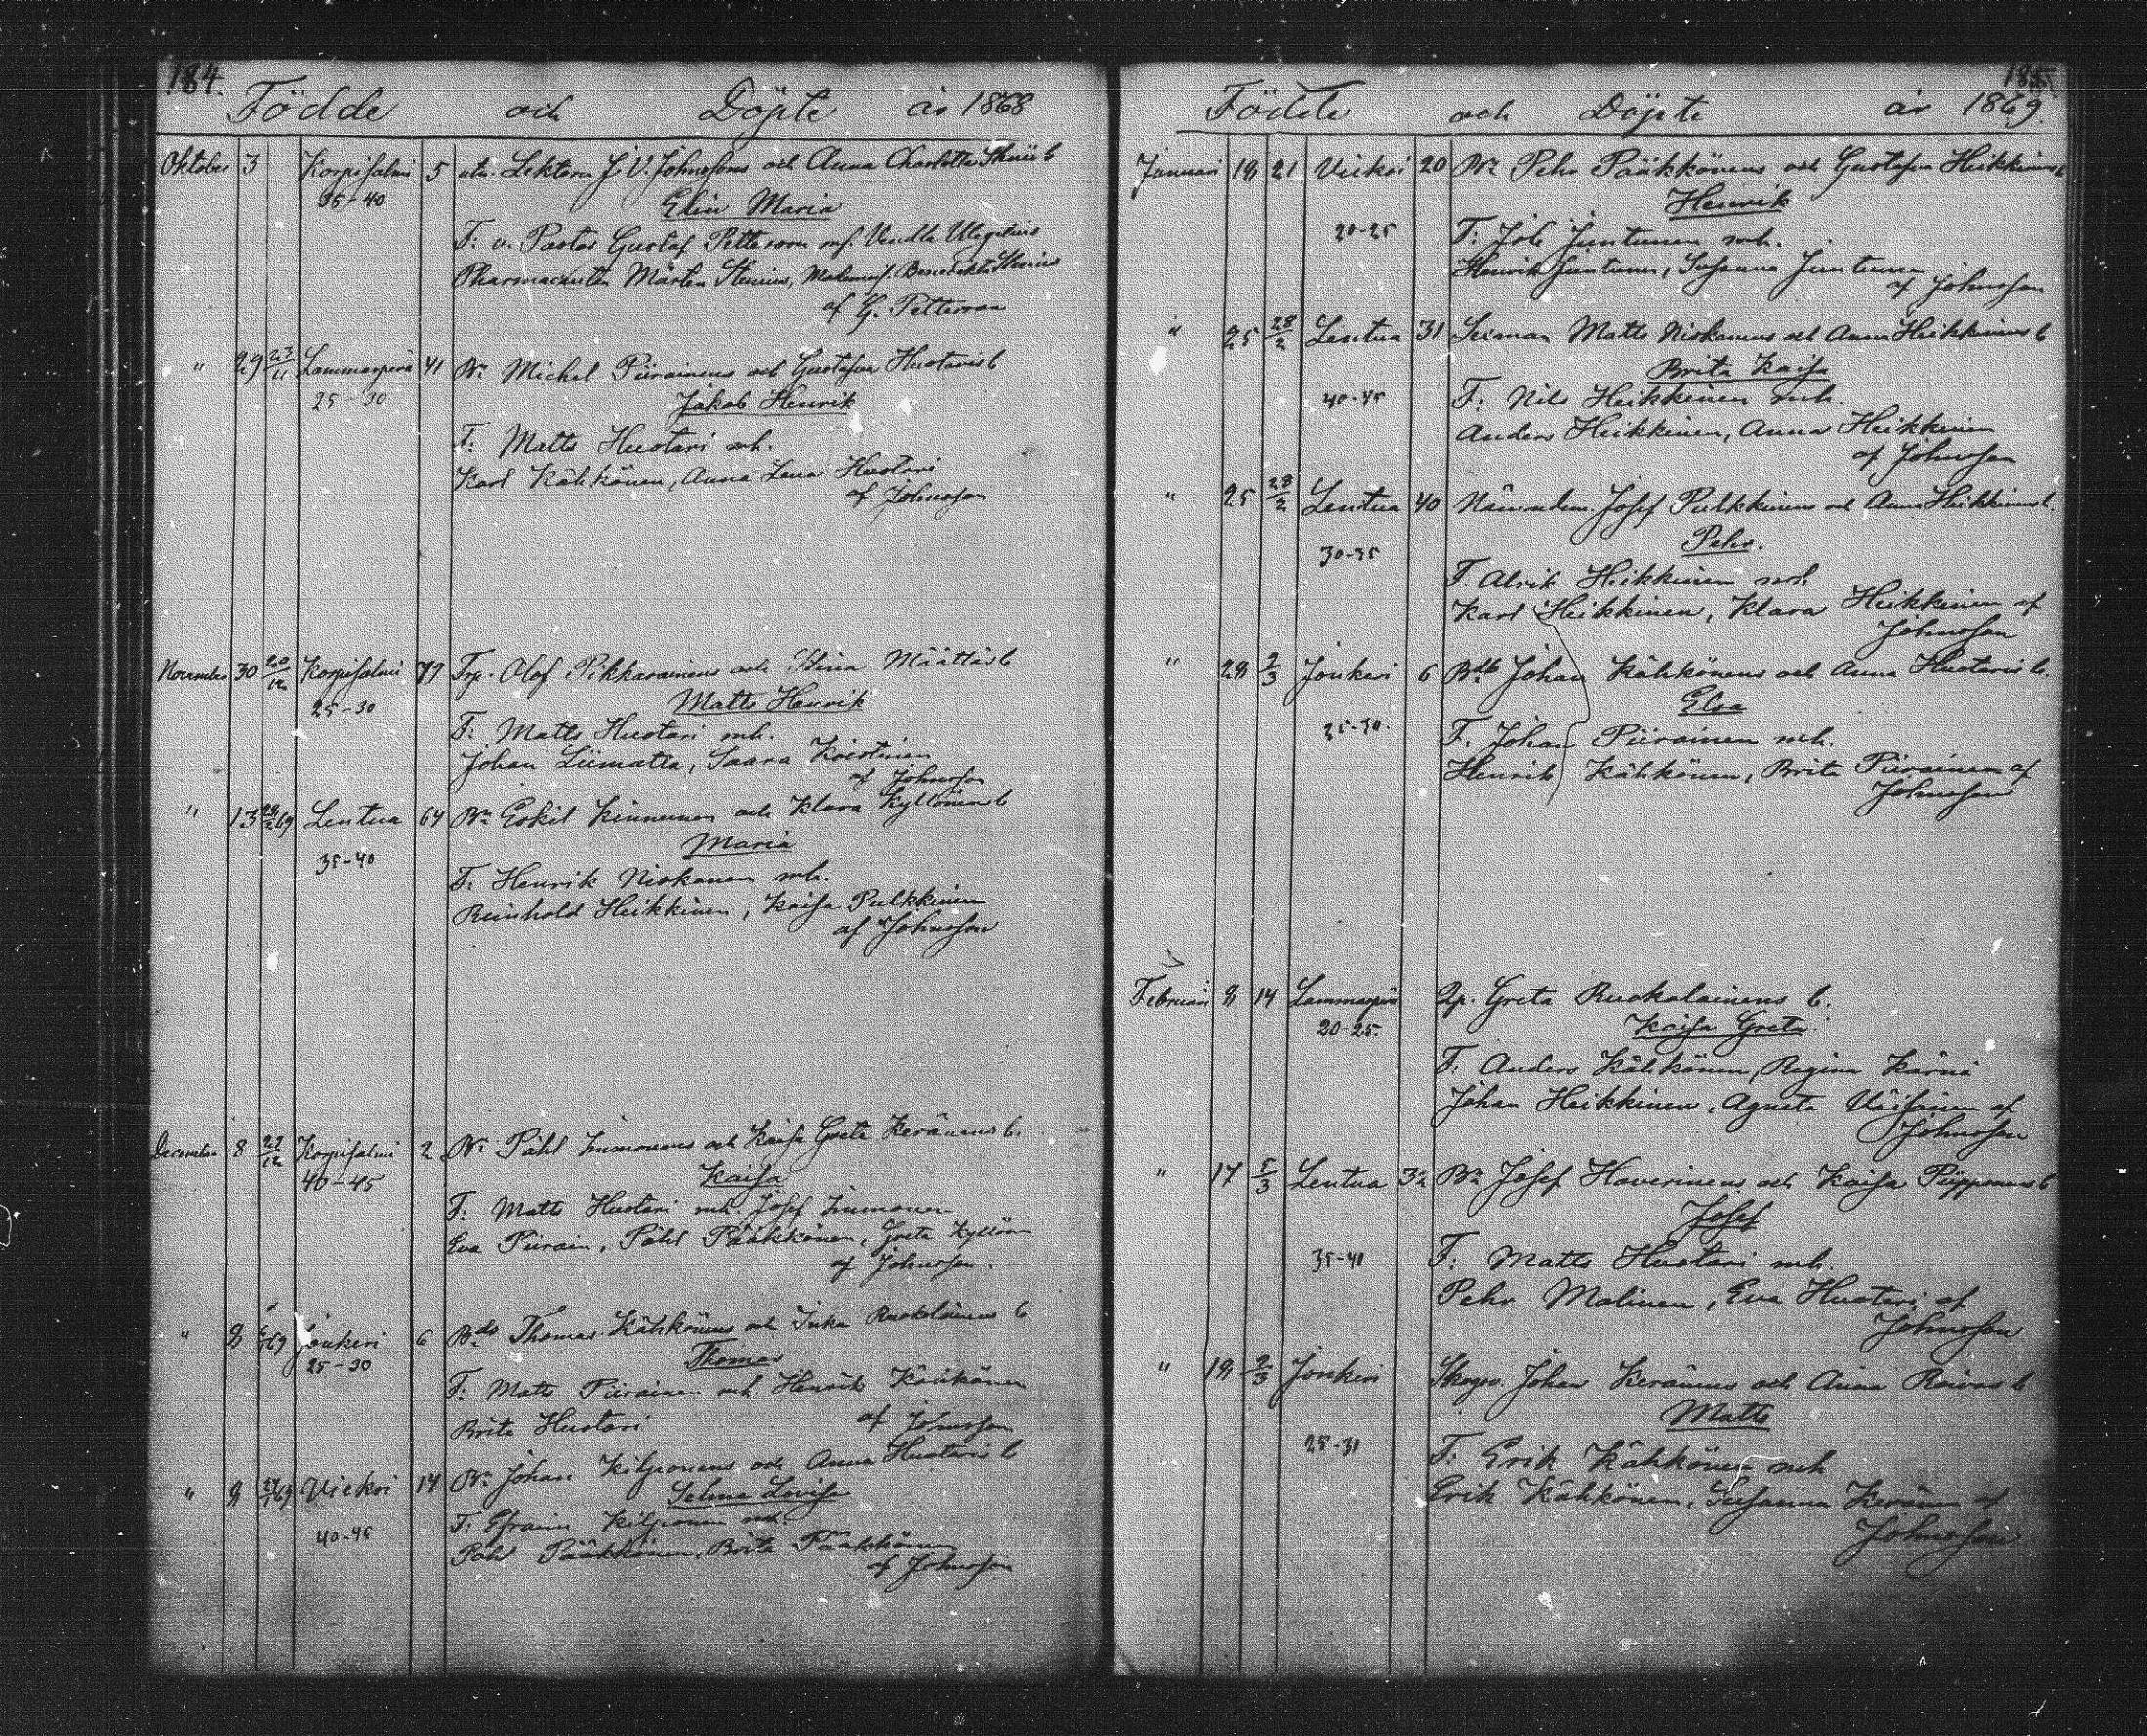 184.
Födde och Döpte år 1868
Oktober 3 Korpisalmi 5 Lektorn J. V. Johnssons och Anna Charlotta b
35-40 Elin Maria
F: v. Pastor Gustaf Petterson mf. Vendla
Pharmaceuten Mårten Stenius, Benedikta Stenius
af G. Petterson
" 29 23/11 Lammasperä 41 Bn Michel Piirainens och Gustafva Huotaris b
25-30 Jakob Henrik
F: Matts Huotari mh.
Karl Kähkönen, Anna Lena Huotari
af Johnsson
November 30 20/12 Korpisalmi 77 Trp. Olof Pikkarainens och Stina Määttäs b
25-30 Matts Henrik
F: Matts Huotari mh.
Johan Liimatta, Saara
af Johnsson
" 13 28/2 69 Lentua 64 Bn Eskil Kinnunen och Klara Kyllönens b
35-40 Maria
F: Henrik Niskanen mh.
Reinhold Heikkinen, Kaisa Pulkkinen
af Johnsson
December 8 27/12 Korpisalmi 2 Bn Påhl Immonens och Kaisa Greta Keränens b.
40-45 Kaisa
F: Matts Huotari mh. Josef Immonen
Eva Piirain, Påhl Pääkkönen, Greta Kyllön
af Johnsson.
" 8 69 Jonkeri 6 Bds Thomas Kähkönens och Inka Ruokolainens b
25-30 Thomas
F: Matts Piirainen mh. Henrik Kähkönen
Brita Huotari af Johnsson
" 8 69 Viekri 14 Bn Johan Kilponens och Anna Huotaris b
Selma Lovisa
40-45 F: Efraim Kilponen mh.
Påhl Pääkkönen, Brita Pääkkönen
af Johnsson
185.
Födde och Döpte år 1869.
Januari 18 21 Viekri 20 Bn Pehr Pääkkönens och Gustafva Heikkinens b
Henrik
20-25 F: Job Juntunen mh.
Henrik Juntunen, Susanna Juntunen
af Johnsson
" 25 28/2 Lentua 31 Matts Niskanens och Anna Heikkinens b
Brita Kaisa
40-45 F: Nils Heikkinen mh.
Anders Heikkinen, Anna Heikkinen
af Johnsson
" 25 28/2 Lentua 40 Nämndem. Josef Pulkkinens och Anna Heikkinens b.
Pehr.
30-35 F. Alrik Heikkinen mh
Karl Heikkinen, Klara Heikkinen af
Johnsson
" 28 2/3 Jonkeri 6 Bds Johan Kähkönens och Anna Huotaris b.
Elsa
25-30. F. Johan Piirainen mh.
Henrik Kähkönen, Brita Piirainen af
Johnsson
Februari 8 14 Lammasperä Qp. Greta Ruokolainens b.
20-25. Kaisa Greta.
F: Anders Kähkönen, Regina Kärnä
Johan Heikkinen, Agneta Väisänen af
Johnsson
" 17 5/3 Lentua 32 Bn Josef Haverinens och Kaisa Piipponens b
Josef
35-40 F: Matts Huotari mh.
Pehr Malinen, Eva Huotari af
Johnsson
" 18 2/3 Jonkeri Skogv. Johan Keränens och Anna b
Matts
25-30 F: Erik Kähkönen mh
Erik Kähkönen, Susanna Keränen af
Johnsson